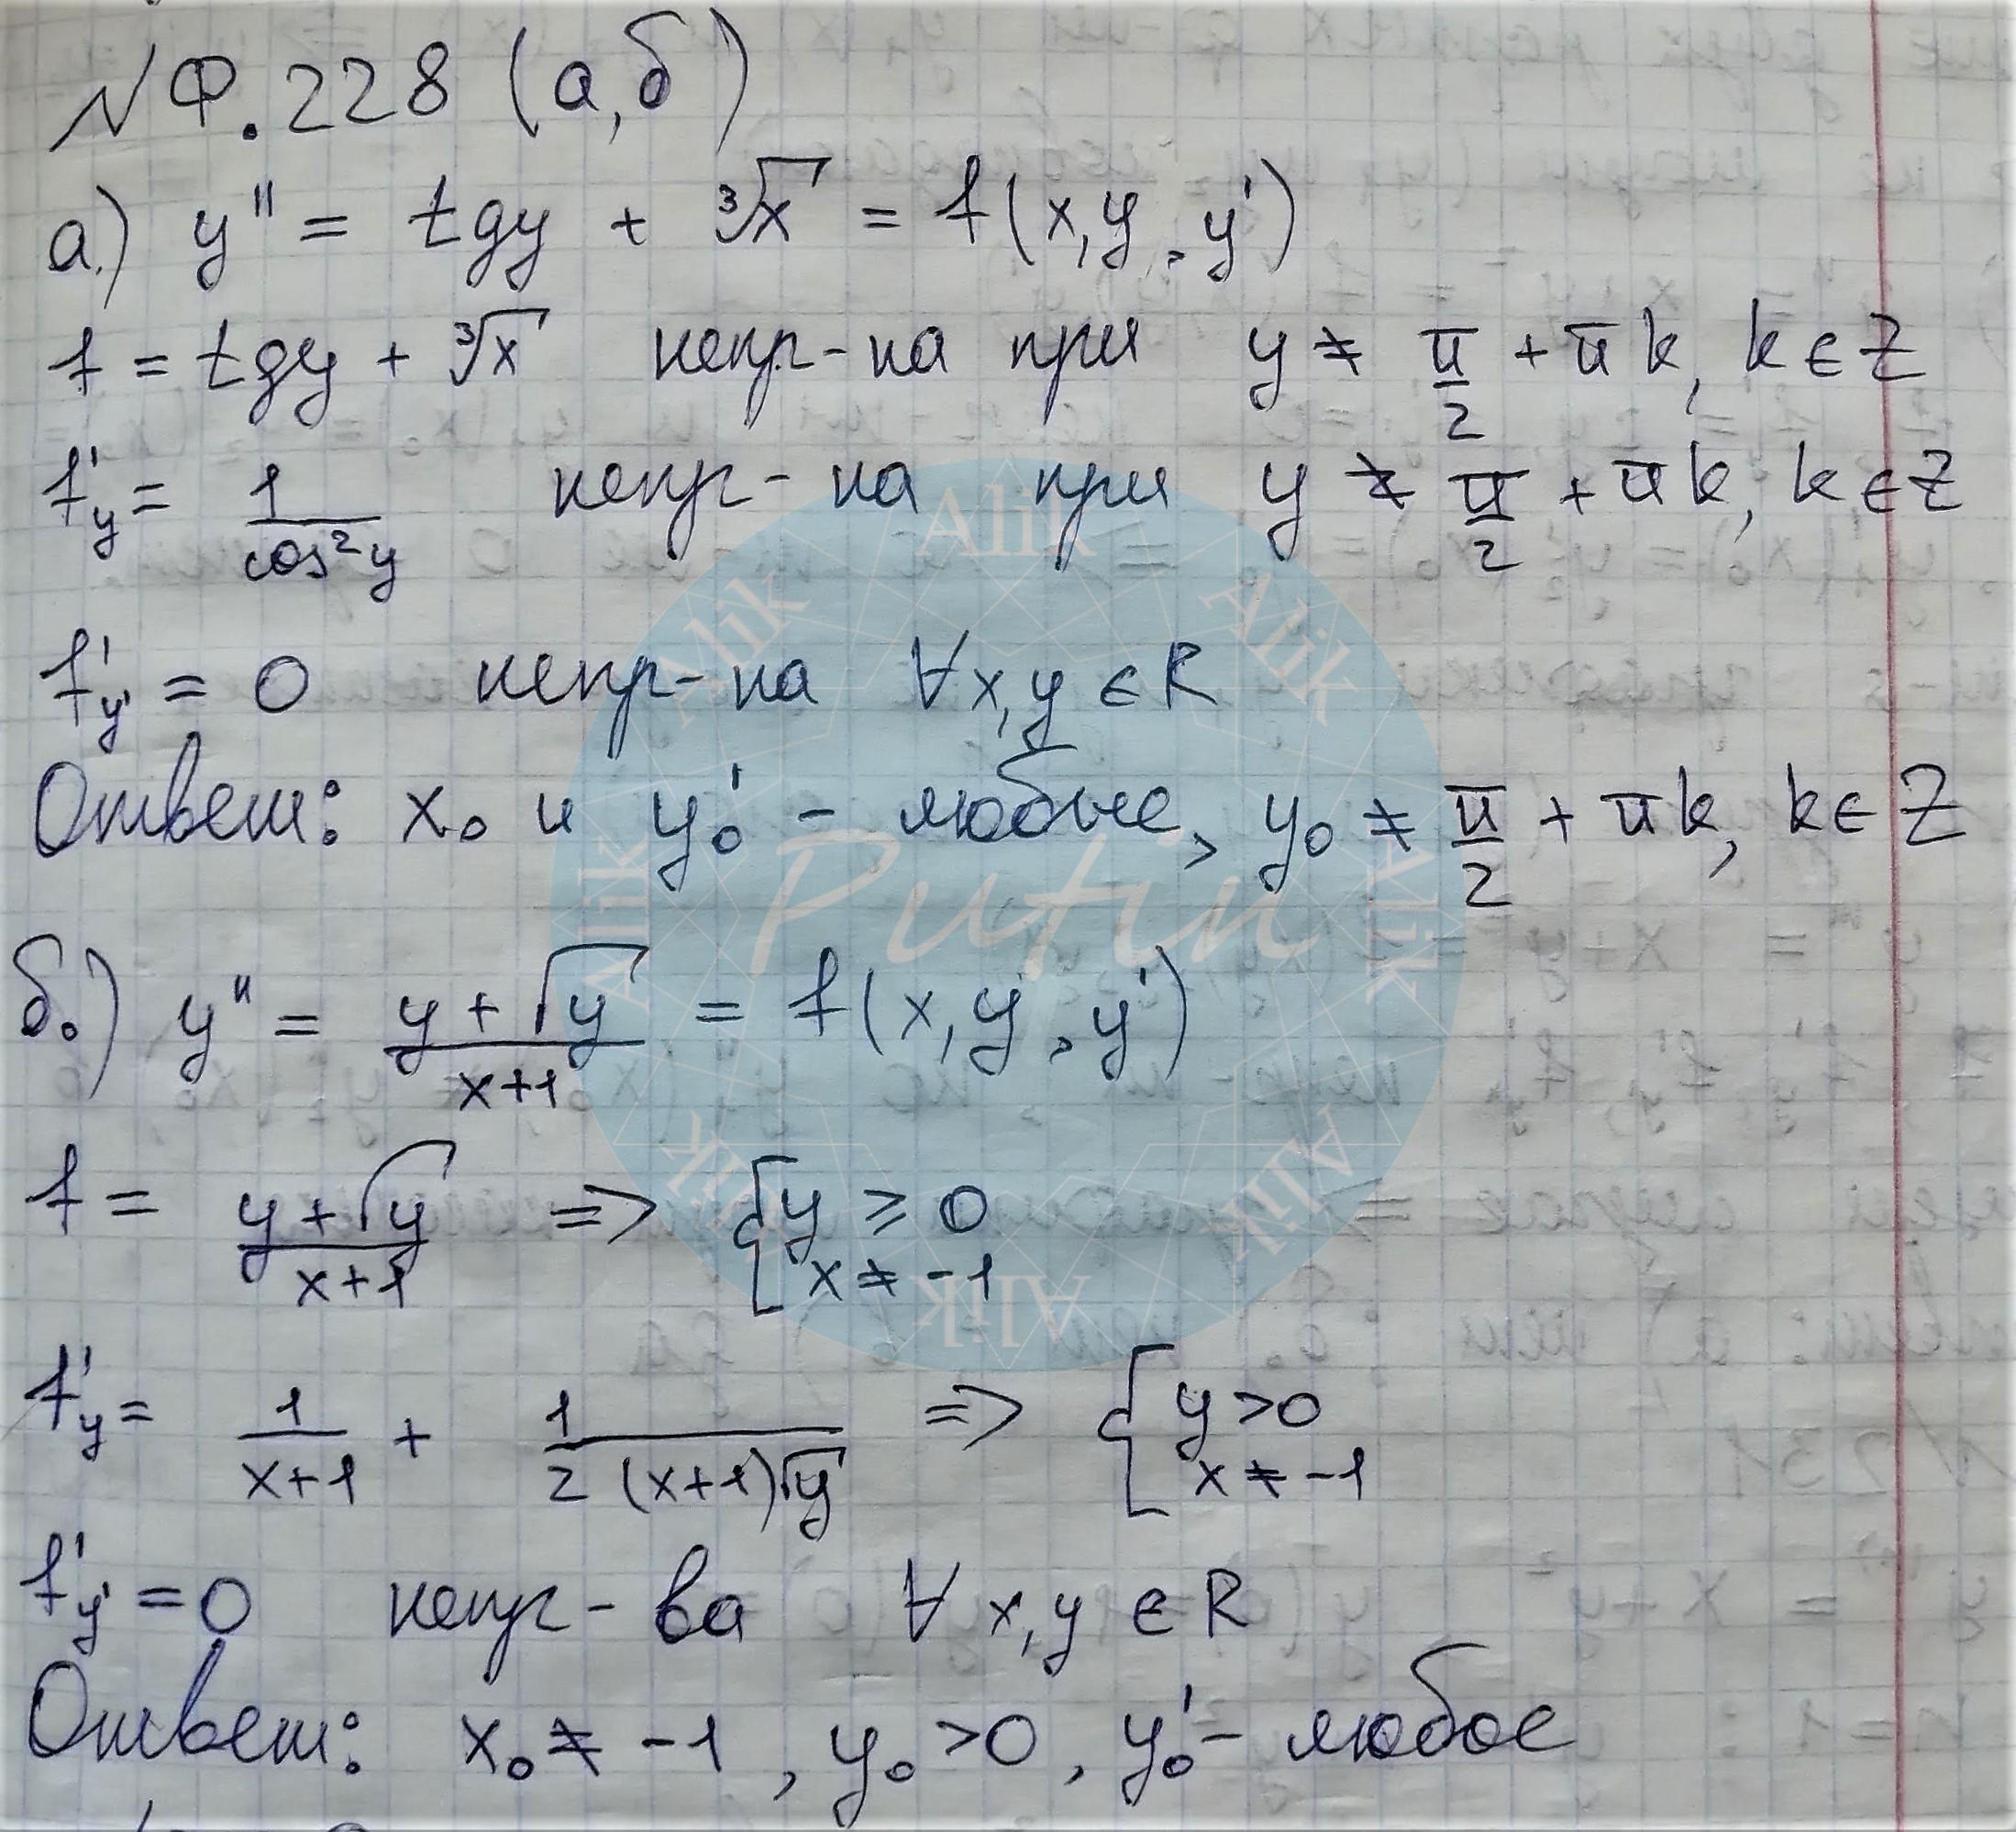 № Ф.228 (а,б)
а.) y'' = tgy + ∛x = f(x,y,y')
f = tgy + ∛x непр-на при y ≠ π/2 + πk, k∈Z
f'y = 1/cos²y непр-на при y ≠ π/2 + πk, k∈Z
f'y' = 0 непр-на ∀x,y∈R
Ответ: x₀ и y₀' - любые, y₀ ≠ π/2 + πk, k∈Z
б.) y'' = (y+√y)/(x+1) = f(x,y,y')
f = (y+√y)/(x+1) => { y ≥ 0
x ≠ -1
f'y = 1/(x+1) + 1/(2(x+1)√y) => { y > 0
x ≠ -1
f'y' = 0 непр-ва ∀x,y∈R
Ответ: x₀ ≠ -1, y₀ > 0, y₀' - любое
Alik
Alik
Alik
Alik
Alik
Alik
Alik
Alik
Putin